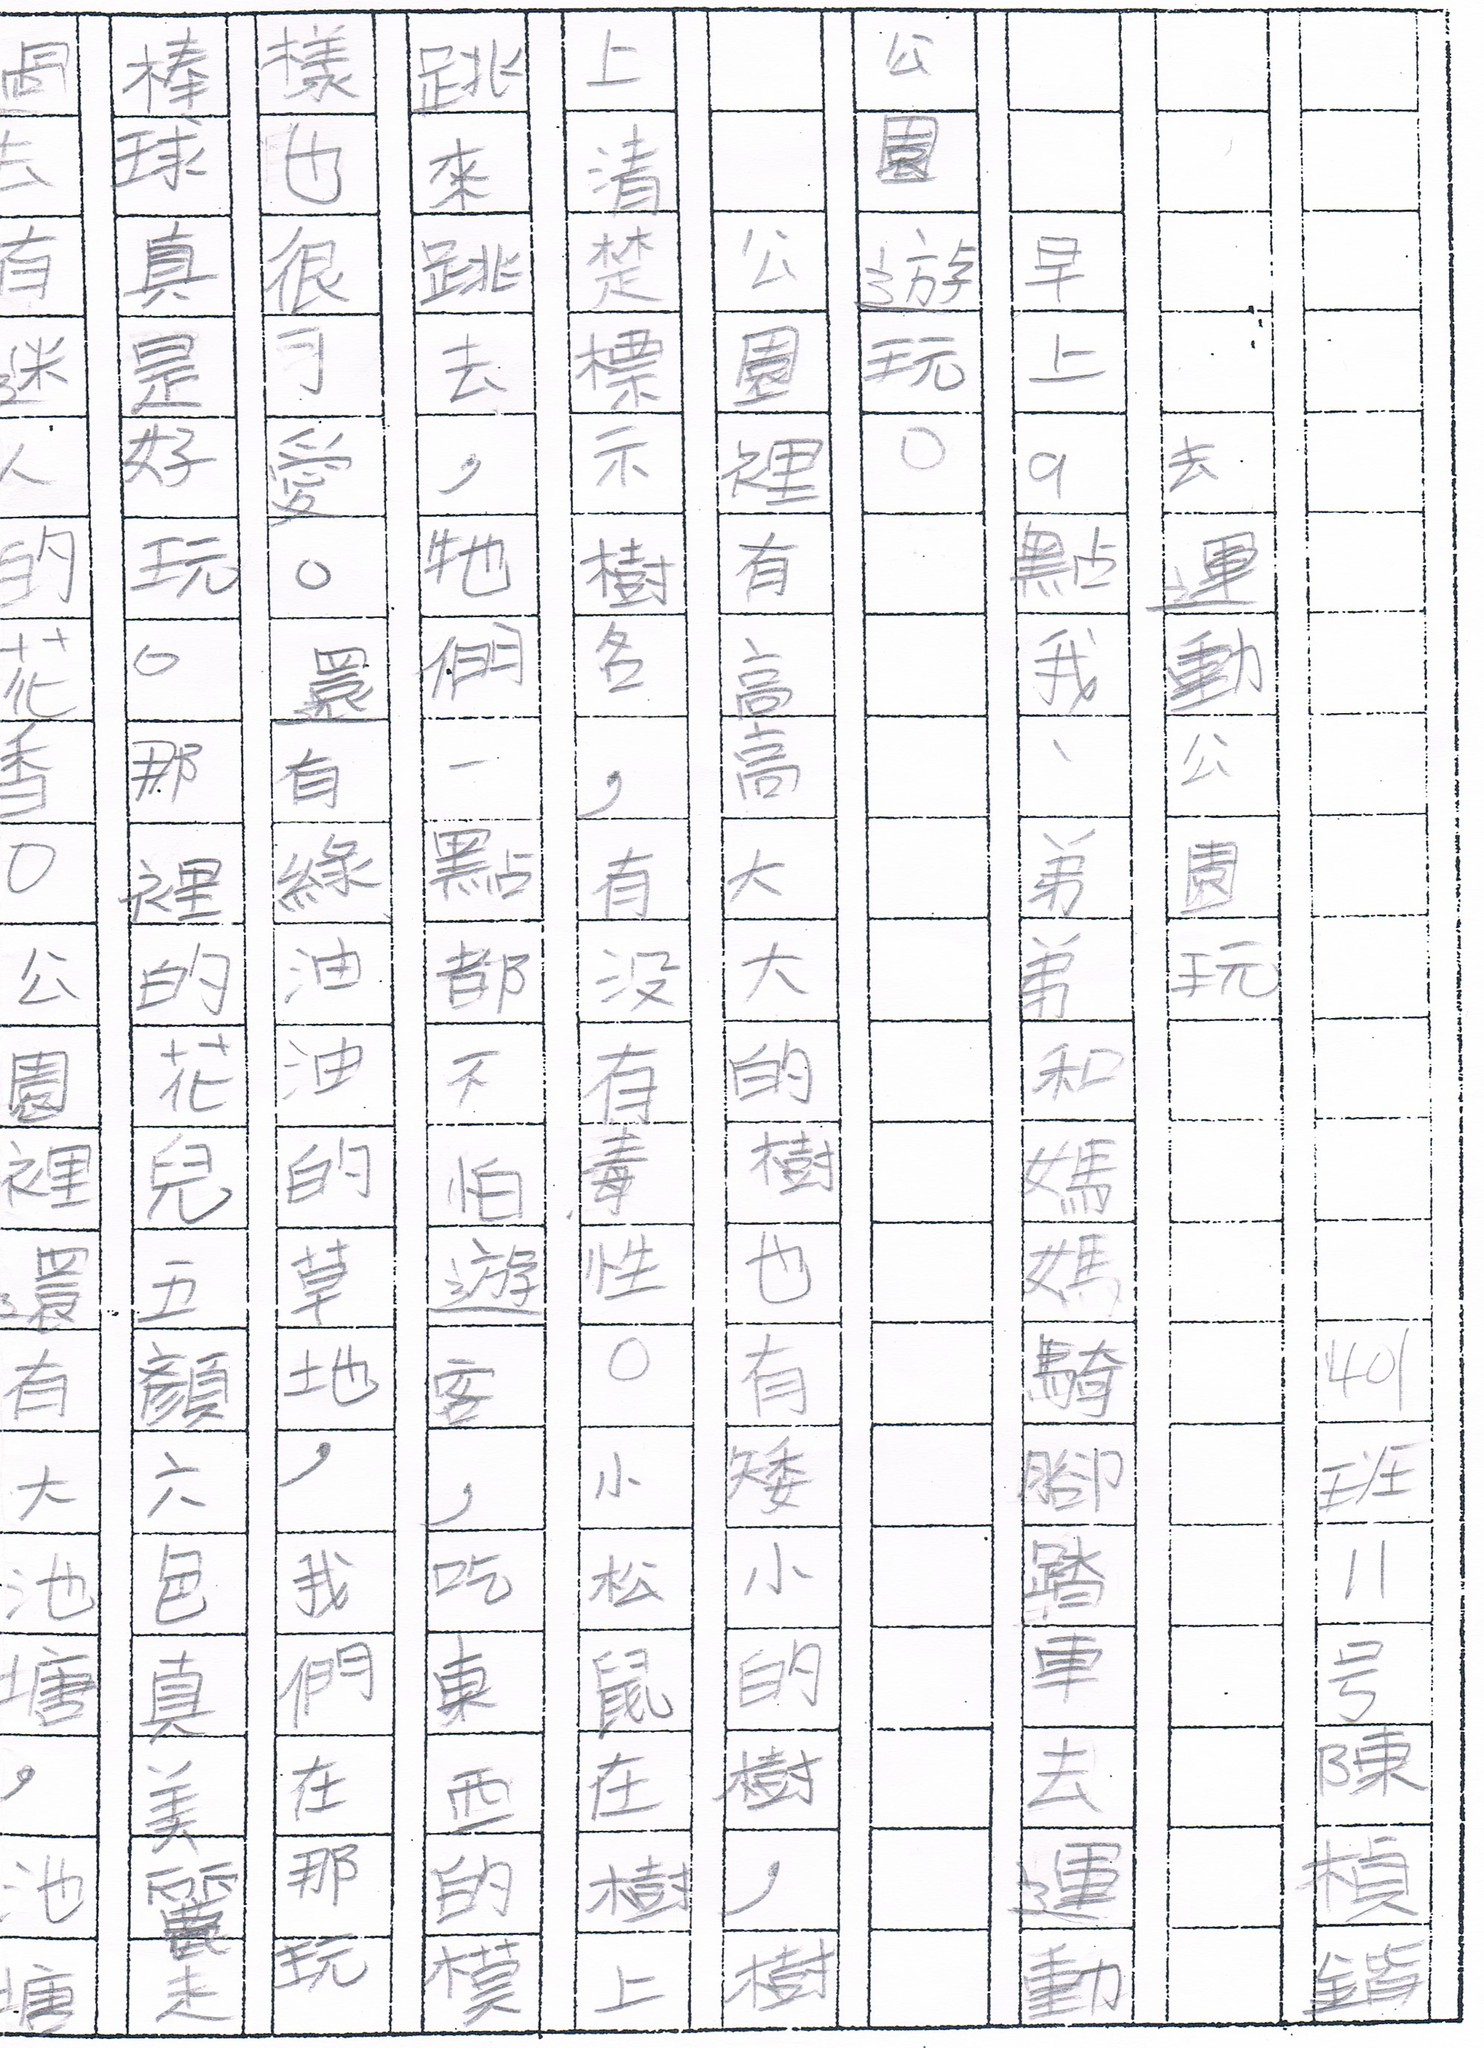 401班11号陳楨鍇
去運動公園玩
早上9點我、弟弟和媽媽騎腳踏車去運動
公園遊玩。
公園裡有高高大大的樹也有矮小的樹,樹
上清楚標示樹名,有没有毒性。小松鼠在樹上
跳來跳去,牠們一點都不怕遊客,吃東西的模
樣也很可愛。還有綠油油的草地,我們在那玩
棒球真是好玩。那裡的花兒五顏六色真美麗走
過去有迷人的花香。公園裡還有大池塘,池塘